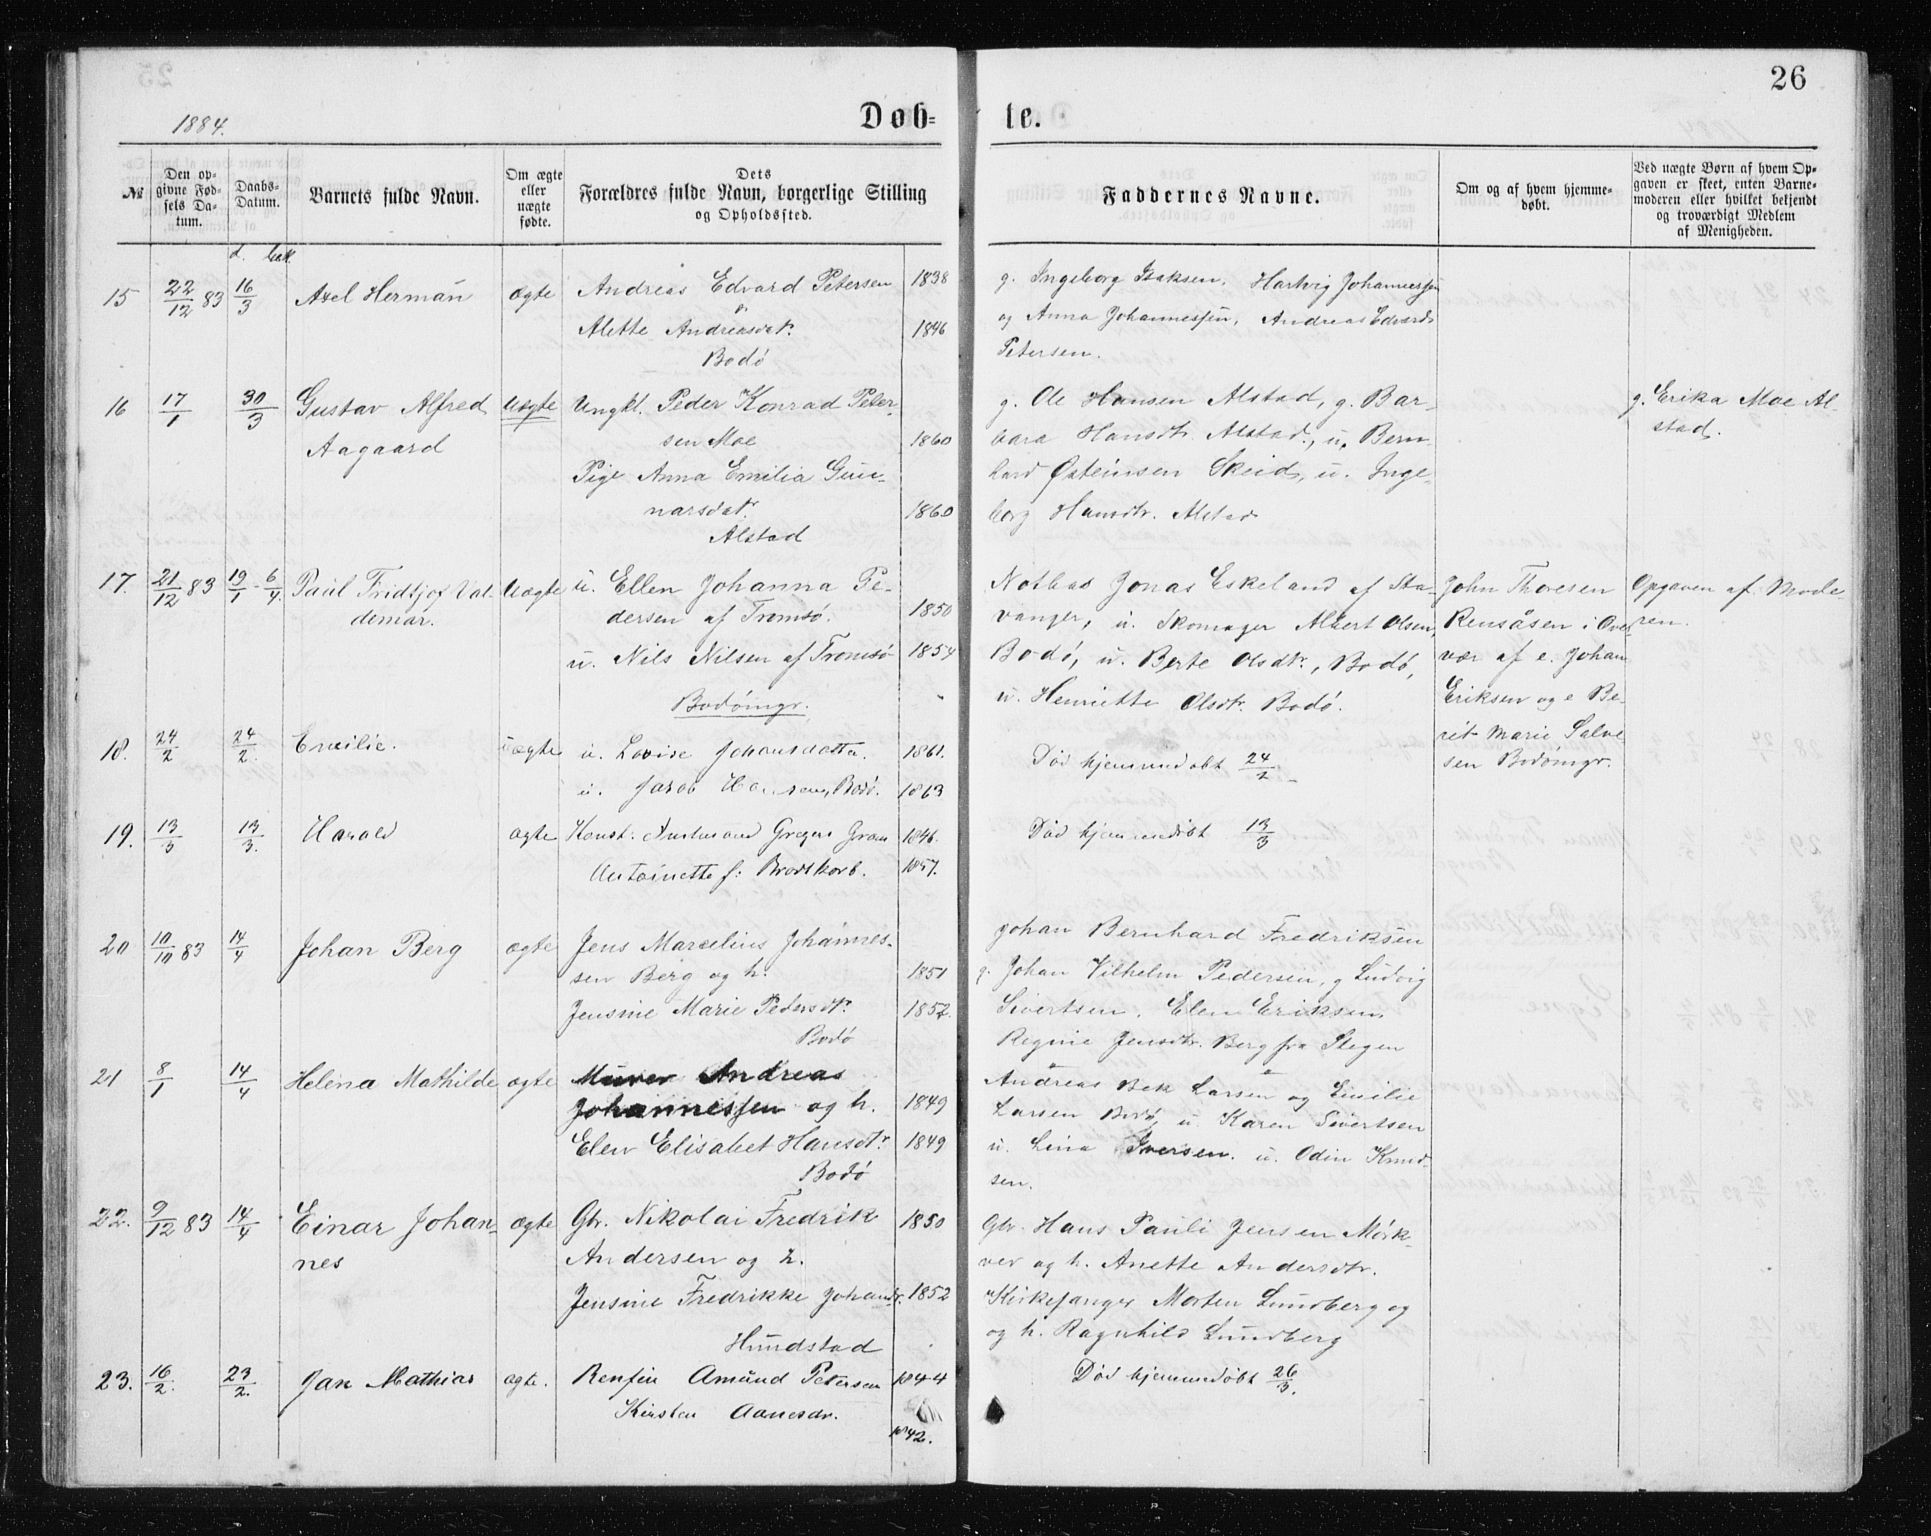 26
1884.
Døb-
te.
№
Den op-
givne Fød-
sels Da-
tum.
Daabs-
Datum.
Barnets fulde Navn.
Om ægte
eller
uægte
fødte.
Dets
Forældres fulde Navn, borgerlige Stilling
og Opholdssted.
Faddernes Navne.
Om og af hvem hjemme-
døbt.
Ved uægte Børn af hvem Op-
gaven er skeet, enten Barne-
moderen eller hvilket bekjendt
og troværdigt Medlem
af Menigheden.
15 22/12 83 16/3 Axel Herman ægte Andreas Edvard Petersen 1838
&
Alette Andreasdatr. 1846
Bodø
g. Ingeborg Isaksen, Hartvig Johannessen
og Anna Johannessen, Andreas Edvard
Petersen.
16 17/1 30/3 Gustav Alfred Uægte Ungkl. Peder Konrad Peter-
Aagaard sen Moe 1860
Pige Anna Emilia Gun-
narsdatr. 1860
Alstad
g. Ole Hansen Alstad, g. Bar-
bara Hansdtr. Alstad, u. Bern
hard Østeinsen Skeid, u. Inge-
borg Hansdtr. Alstad
g. Erika Moe Al-
stad.
17. 21/12 83 19/1 - 6/4. Paul Fridtjof Val- Uægte u. Ellen Johanna Pe-
demar. dersen af Tromsø. 1850
u. Nils Nilsen af Tromsø 1854
Bodømgr.
Notbas Jonas Eskeland af Sta-
vanger, u. Skomager Albert Olsen,
Bodø, u. Berte Olsdtr., Bodø,
u. Henriette Olsdtr. Bodø.
John Thoresen
Rensåsen i Over
vær af e. Johan
Eriksen og e Be-
rit Marie Salve
sen Bodømgr.
Opgaven af Mode-
ren.
18. 24/2 24/2. Emilie. uægte u. Lovise Johansdatter. 1861.
u. Jacob Bodø. 1863
Død hjemmedøbt 24/2
19. 13/3 13/3. Harald ægte Konst. Gregers Gram 1846.
Antoinette f: Brodtkorb. 1857.
Død hjemmedøbt 13/3
20 10/10 83 14/4 Johan Berg ægte Jens Marselius Johannes-
sen Berg og h. 1851
Jensine Marie Pedersdtr. 1852.
Bodø
Johan Bernhard Fredriksen
g. Johan Vilhelm Pedersen, g Ludvig
Sivertsen, Elen Eriksen,
Regine Jensdtr. Berg fra Stegen
21 8/1 14/4 Helena Mathilde ægte Murer Andreas
Johannessen og h. 1849
Elen Elisabet Hansdtr 1849
Bodø
Andreas Bek Larsen og Emilie
Larsen Bodø, u. Karen Sivertsen
u. Lina Iversen. u. Odin Knud-
sen.
22. 9/12 83 14/4 Einar Johan- ægte Gbr. Nikolai Fredrik 1850
nes Andersen og h.
Jensine Fredrikke Johansdr. 1852
Hundstad
Gbr. Hans Pauli Jensen Mørk-
ver og h. Anette Andersdtr.
Kirkesanger Morten Lundberg og
og h. Ragnhild Lundberg
23. 16/2. 23/2. Jan Mathias ægte. Amund Petersen 1844
Kirsten Aanesdr. 1842.
Død hjemmedøbt 26/3.